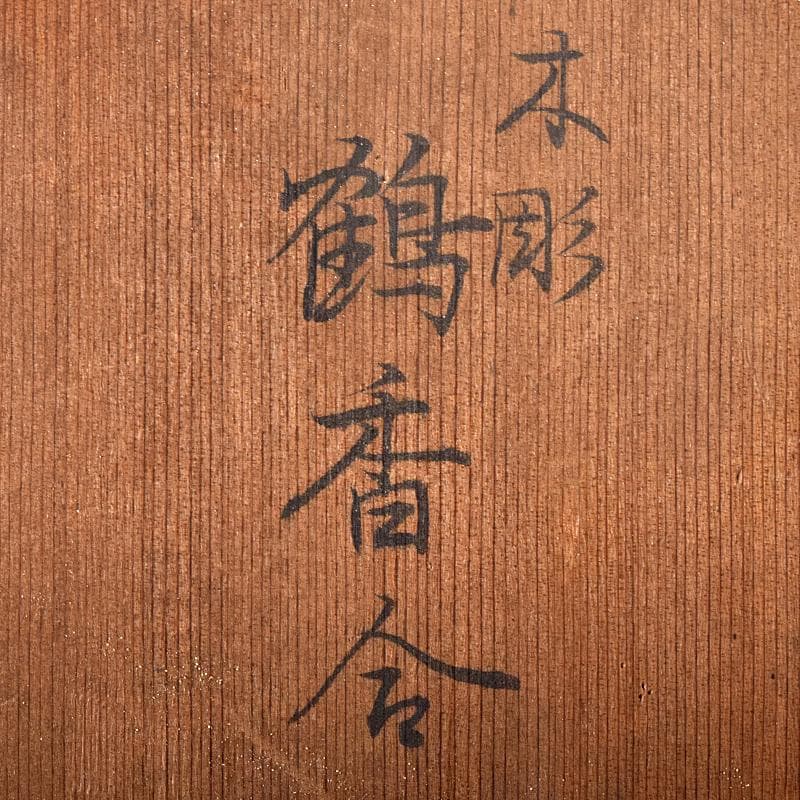 木彫
鶴香合